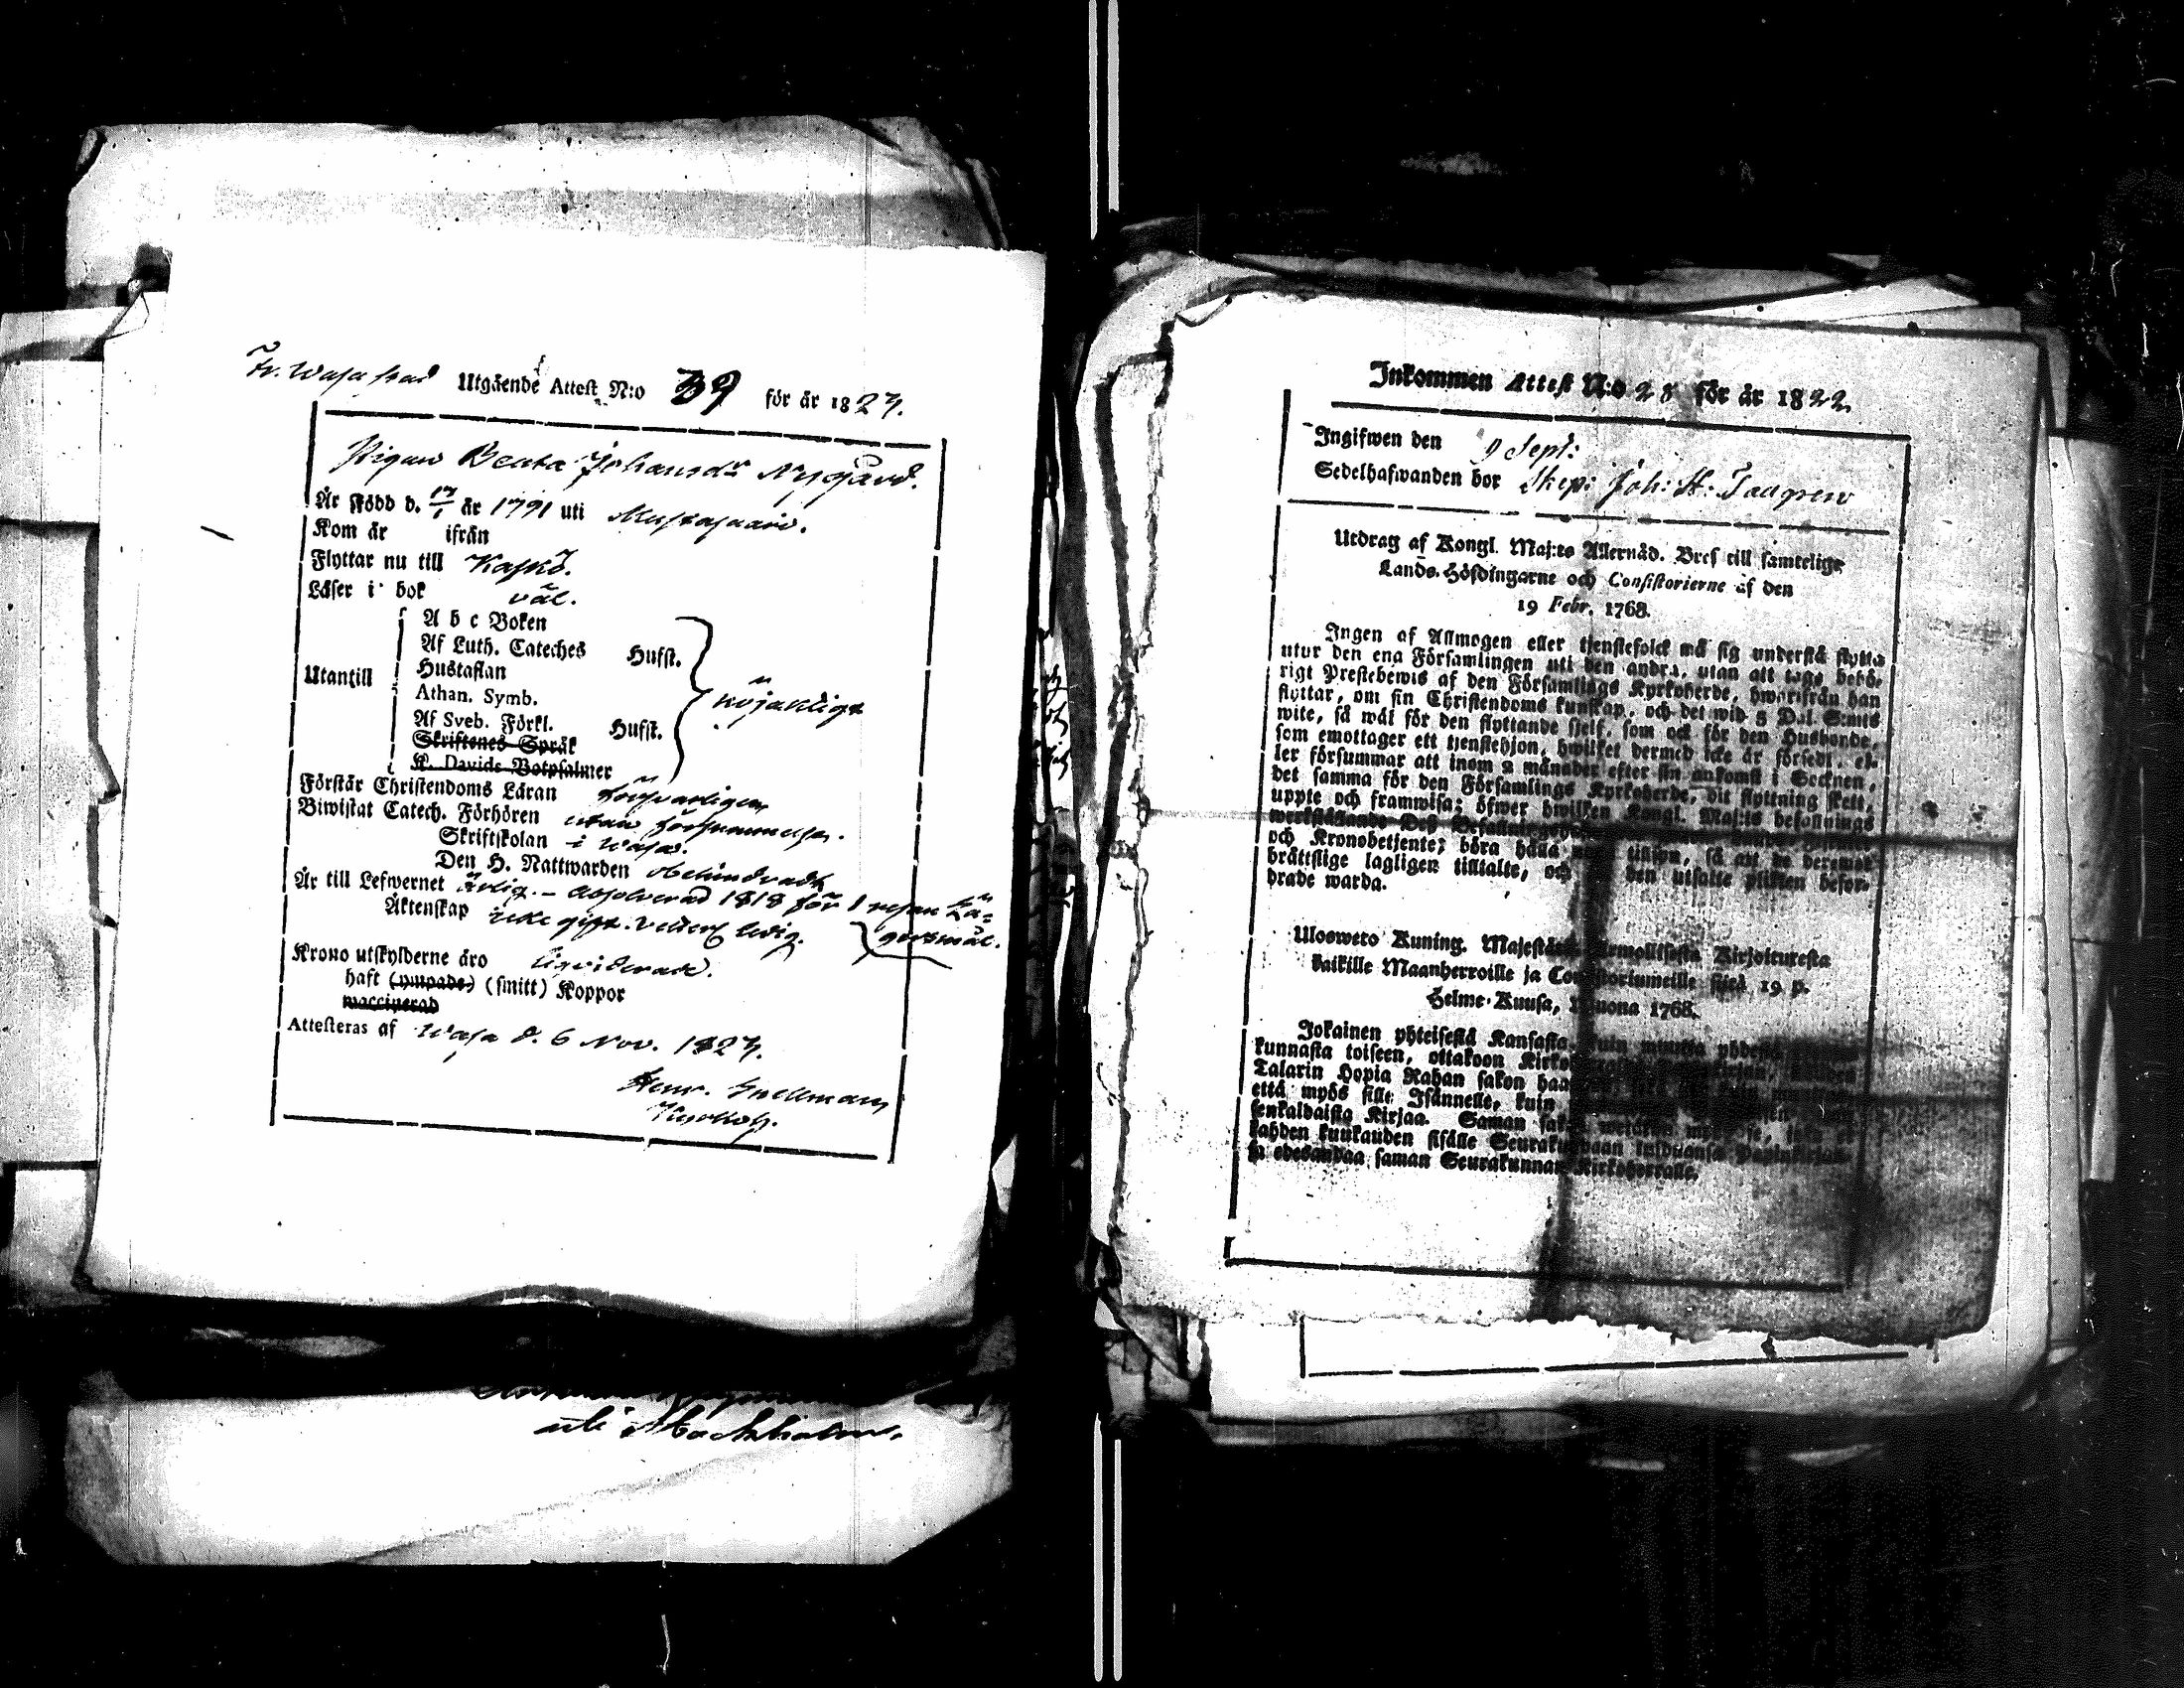 Fr. Wasa stad Utgående Attest N:o 39 för år 1823.
Pigan Beata Johansdr Nygård.
År Född d. 17/1 år 1791 uti Mustasaari.
Kom år ifrån
Flyttar nu till Kaskö.
Läser i bok väl.
A b c Boken
Af Luth. Cateches Hufst.
Utantill Hustaflan
Athan. Symb. nöjaktigt
Af Sveb. Förkl. Hufst.
Skriftenes Språk
K. Davids Botpsalmer
Förstår Christendoms Läran försvarligen
Biwistat Catech. Förhören utan försummelse.
Skriftskolan i Wasa.
Den H. Nattwarden obehindradt
År till Lefwernet ärlig. - Absolverad 1818 för 1 resan Lä=
gersmål.
Äktenskap icke gift. veterl. ledig.
Krono utskylderne äro liqviderade.
haft (ympade) (smitt) Koppor
waccinerad
Attesteras af Wasa d. 6 Nov. 1823.
Henr. Snellman
uti Stockholm.
Inkommen Attest N:o 28 för år 1822.
Ingifwen den 9 Sept:
Sedelhafwanden bor Skep: Joh: H: Taugren
Utdrag af Kongl. Maj:ts Allernåd. Bref till samtelige
Lands-Höfdingarne och Consistorierne af den
19 Febr. 1768.
Ingen af Allmogen eller tjenstefolck må sig understå flytta
utur den ena Församlingen uti den andra, utan att taga behö-
rigt Prestebewis af den Församlings Kyrkoherde, hwarifrån han
flyttar, om sin Christendoms kunskap, och det wid 5 Dal. S:mts
wite, så wäl för den flyttande sjelf, som ock för den Husbonde,
som emottager ett tjenstehjon, hwilket dermed icke är försedt, el-
ler försummar att inom 2 månader efter sin ankomst i Socknen,
det samma för den Församlings Kyrkoherde, dit flyttning skett,
uppte och framwisa; öfwer hwilken Kongl. Maj:ts befallnings
werkställande
och Kronobetjente, böra hålla tillsyn, så att de dermot
brättslige lagligen tilltalte, och den utsatte plikten befor-
drade warda.
Uloswето Kuning. Majestät Armollisesta Kirjoituxesta
kaikille Maanherroille ja Consistoriumeille siitä 19 p.
Helme-Kuusa, Wuonna 1768.
Jokainen yhteisestä Kansasta, kuin muutta yhdestä
kunnasta toiseen, ottakoon Kirko
Talarin Hopia Rahan sakon haa
että myös sille Isännelle, kuin
senkaldaista Kirjaa. Saman sakon
kahden kuukauden sisälle Seurakundaan
edesandaa saman Seurakunnan Kirkoherralle.